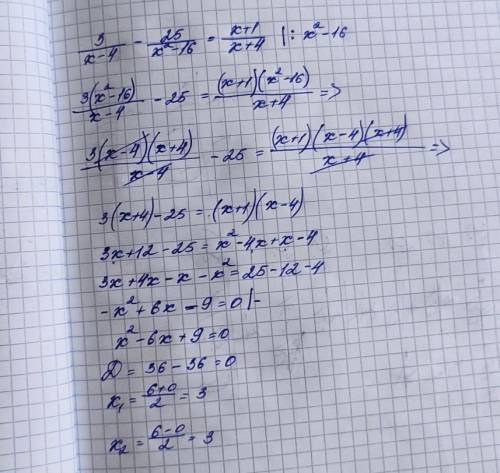 3/(x-4) - 25/(x²-16) = (x+1)/(x+4) |: x²-16
3(x²-16)/(x-4) - 25 = (x+1)(x²-16)/(x+4) =>
3(x-4)(x+4)/(x-4) - 25 = (x+1)(x-4)(x+4)/(x+4) =>
3(x+4)-25 = (x+1)(x-4)
3x+12-25 = x²-4x+x-4
3x+4x-x-x² = 25-12-4
-x²+6x-9=0 |-
x²-6x+9=0
D = 36-36=0
x₁ = (6+0)/2 = 3
x₂ = (6-0)/2 = 3